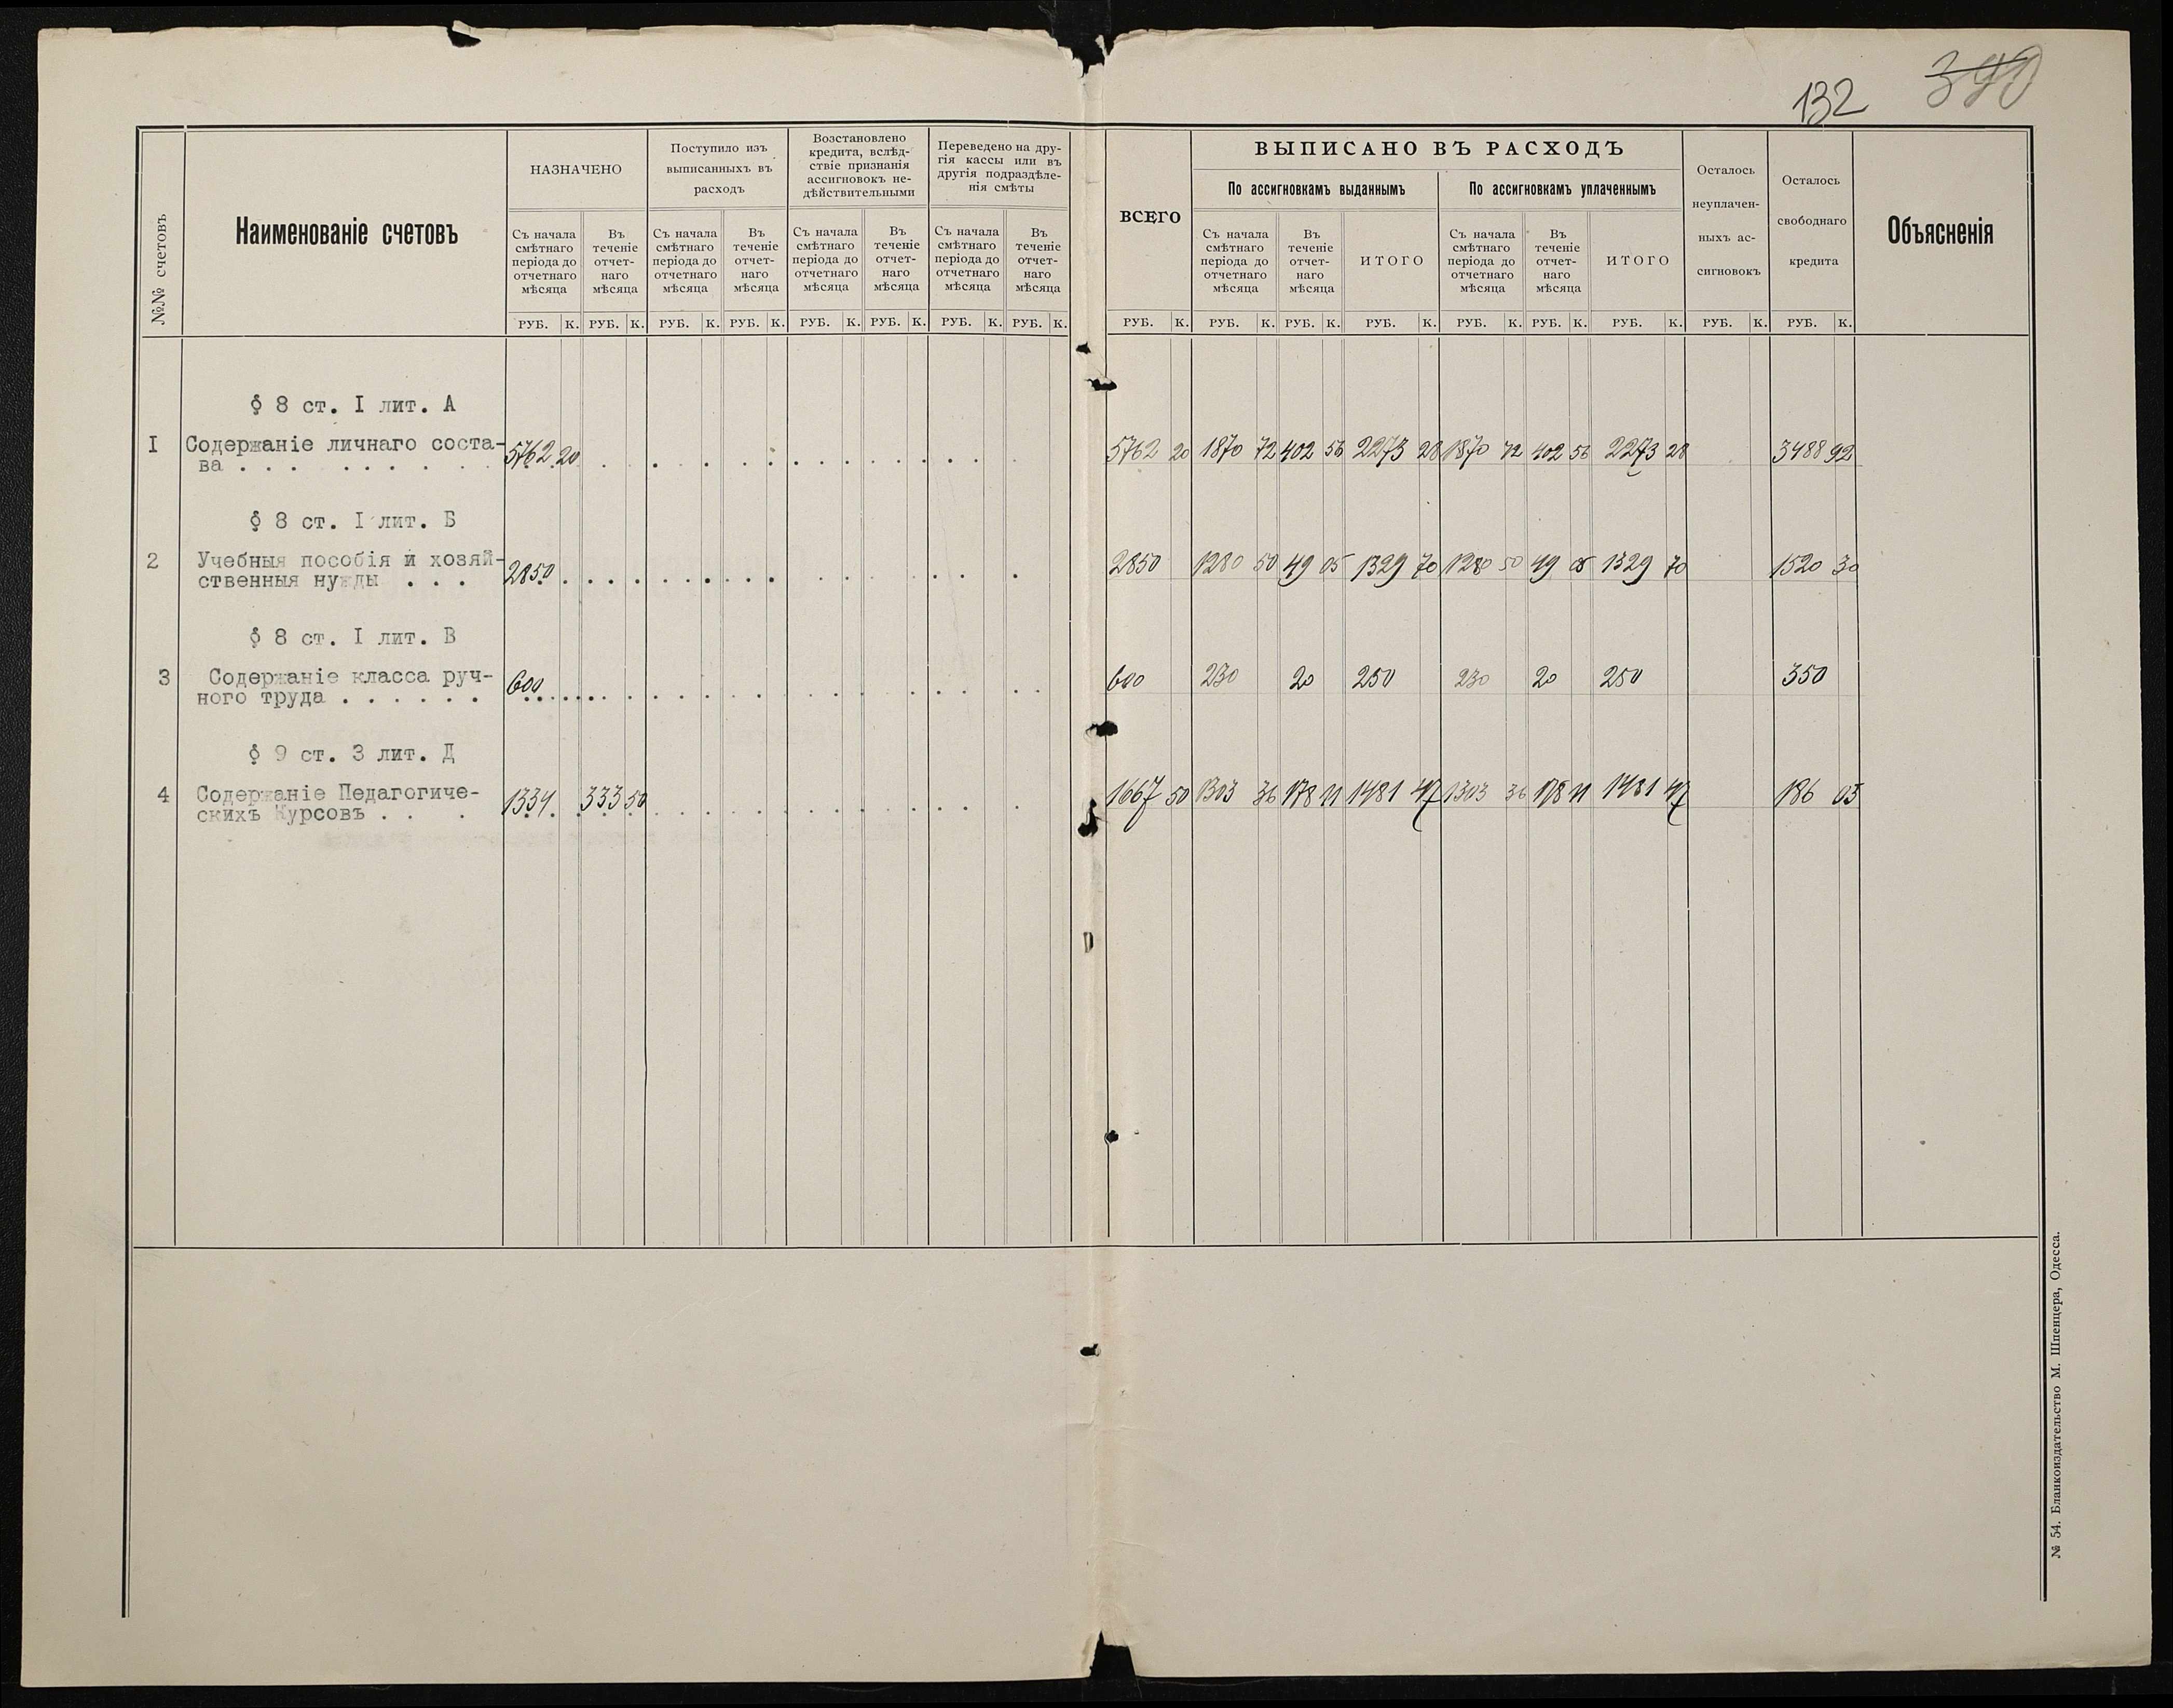 132 390
№№ счетовъ
Наименованіе счетовъ
НАЗНАЧЕНО
Поступило изъ
выписанныхъ въ
расходъ
Возстановлено
кредита, вслѣд-
ствіе признанія
ассигновокъ не-
дѣйствительными
Переведено на дру-
гія кассы или въ
другія подраздѣле-
нія смѣты
ВСЕГО
ВЫПИСАНО ВЪ РАСХОДЪ
По ассигновкамъ выданнымъ
По ассигновкамъ уплаченнымъ
Осталось
неуплачен-
ныхъ ас-
сигновокъ
Осталось
свободнаго
кредита
Объясненія
Съ начала
смѣтнаго
періода до
отчетнаго
мѣсяца
Въ
теченіе
отчет-
наго
мѣсяца
Съ начала
смѣтнаго
періода до
отчетнаго
мѣсяца
Въ
теченіе
отчет-
наго
мѣсяца
Съ начала
смѣтнаго
періода до
отчетнаго
мѣсяца
Въ
теченіе
отчет-
наго
мѣсяца
Съ начала
смѣтнаго
періода до
отчетнаго
мѣсяца
Въ
теченіе
отчет-
наго
мѣсяца
Съ начала
смѣтнаго
періода до
отчетнаго
мѣсяца
Въ
теченіе
отчет-
наго
мѣсяца
ИТОГО
Съ начала
смѣтнаго
періода до
отчетнаго
мѣсяца
Въ
теченіе
отчет-
наго
мѣсяца
ИТОГО
РУБ. К. РУБ. К. РУБ. К. РУБ. К. РУБ. К. РУБ. К. РУБ. К. РУБ. К. РУБ. К. РУБ. К. РУБ. К. РУБ. К. РУБ. К. РУБ. К. РУБ. К. РУБ. К. РУБ. К.
§ 8 ст. I лит. А
I Содержаніе личнаго соста-
ва . . . . . . . . 5762 20 5762 20 1870 72 402 56 2273 28 1870 72 402 56 2273 28 3488 92
§ 8 ст. I лит. Б
2 Учебныя пособія и хозяй-
ственныя нужды . . . 2850 2850 1280 50 49 05 1329 70 1280 50 49 05 1329 70 1520 30
§ 8 ст. I лит. В
3 Содержаніе класса руч-
ного труда . . . . . . 600 600 230 20 250 230 20 250 350
§ 9 ст. 3 лит. Д
4 Содержаніе Педагогиче-
скихъ Курсовъ . . . 1334 333 50 1667 50 1303 36 178 11 1481 47 1303 36 178 11 1481 47 186 03
№ 54. Бланкоиздательство М. Шпенцера, Одесса.